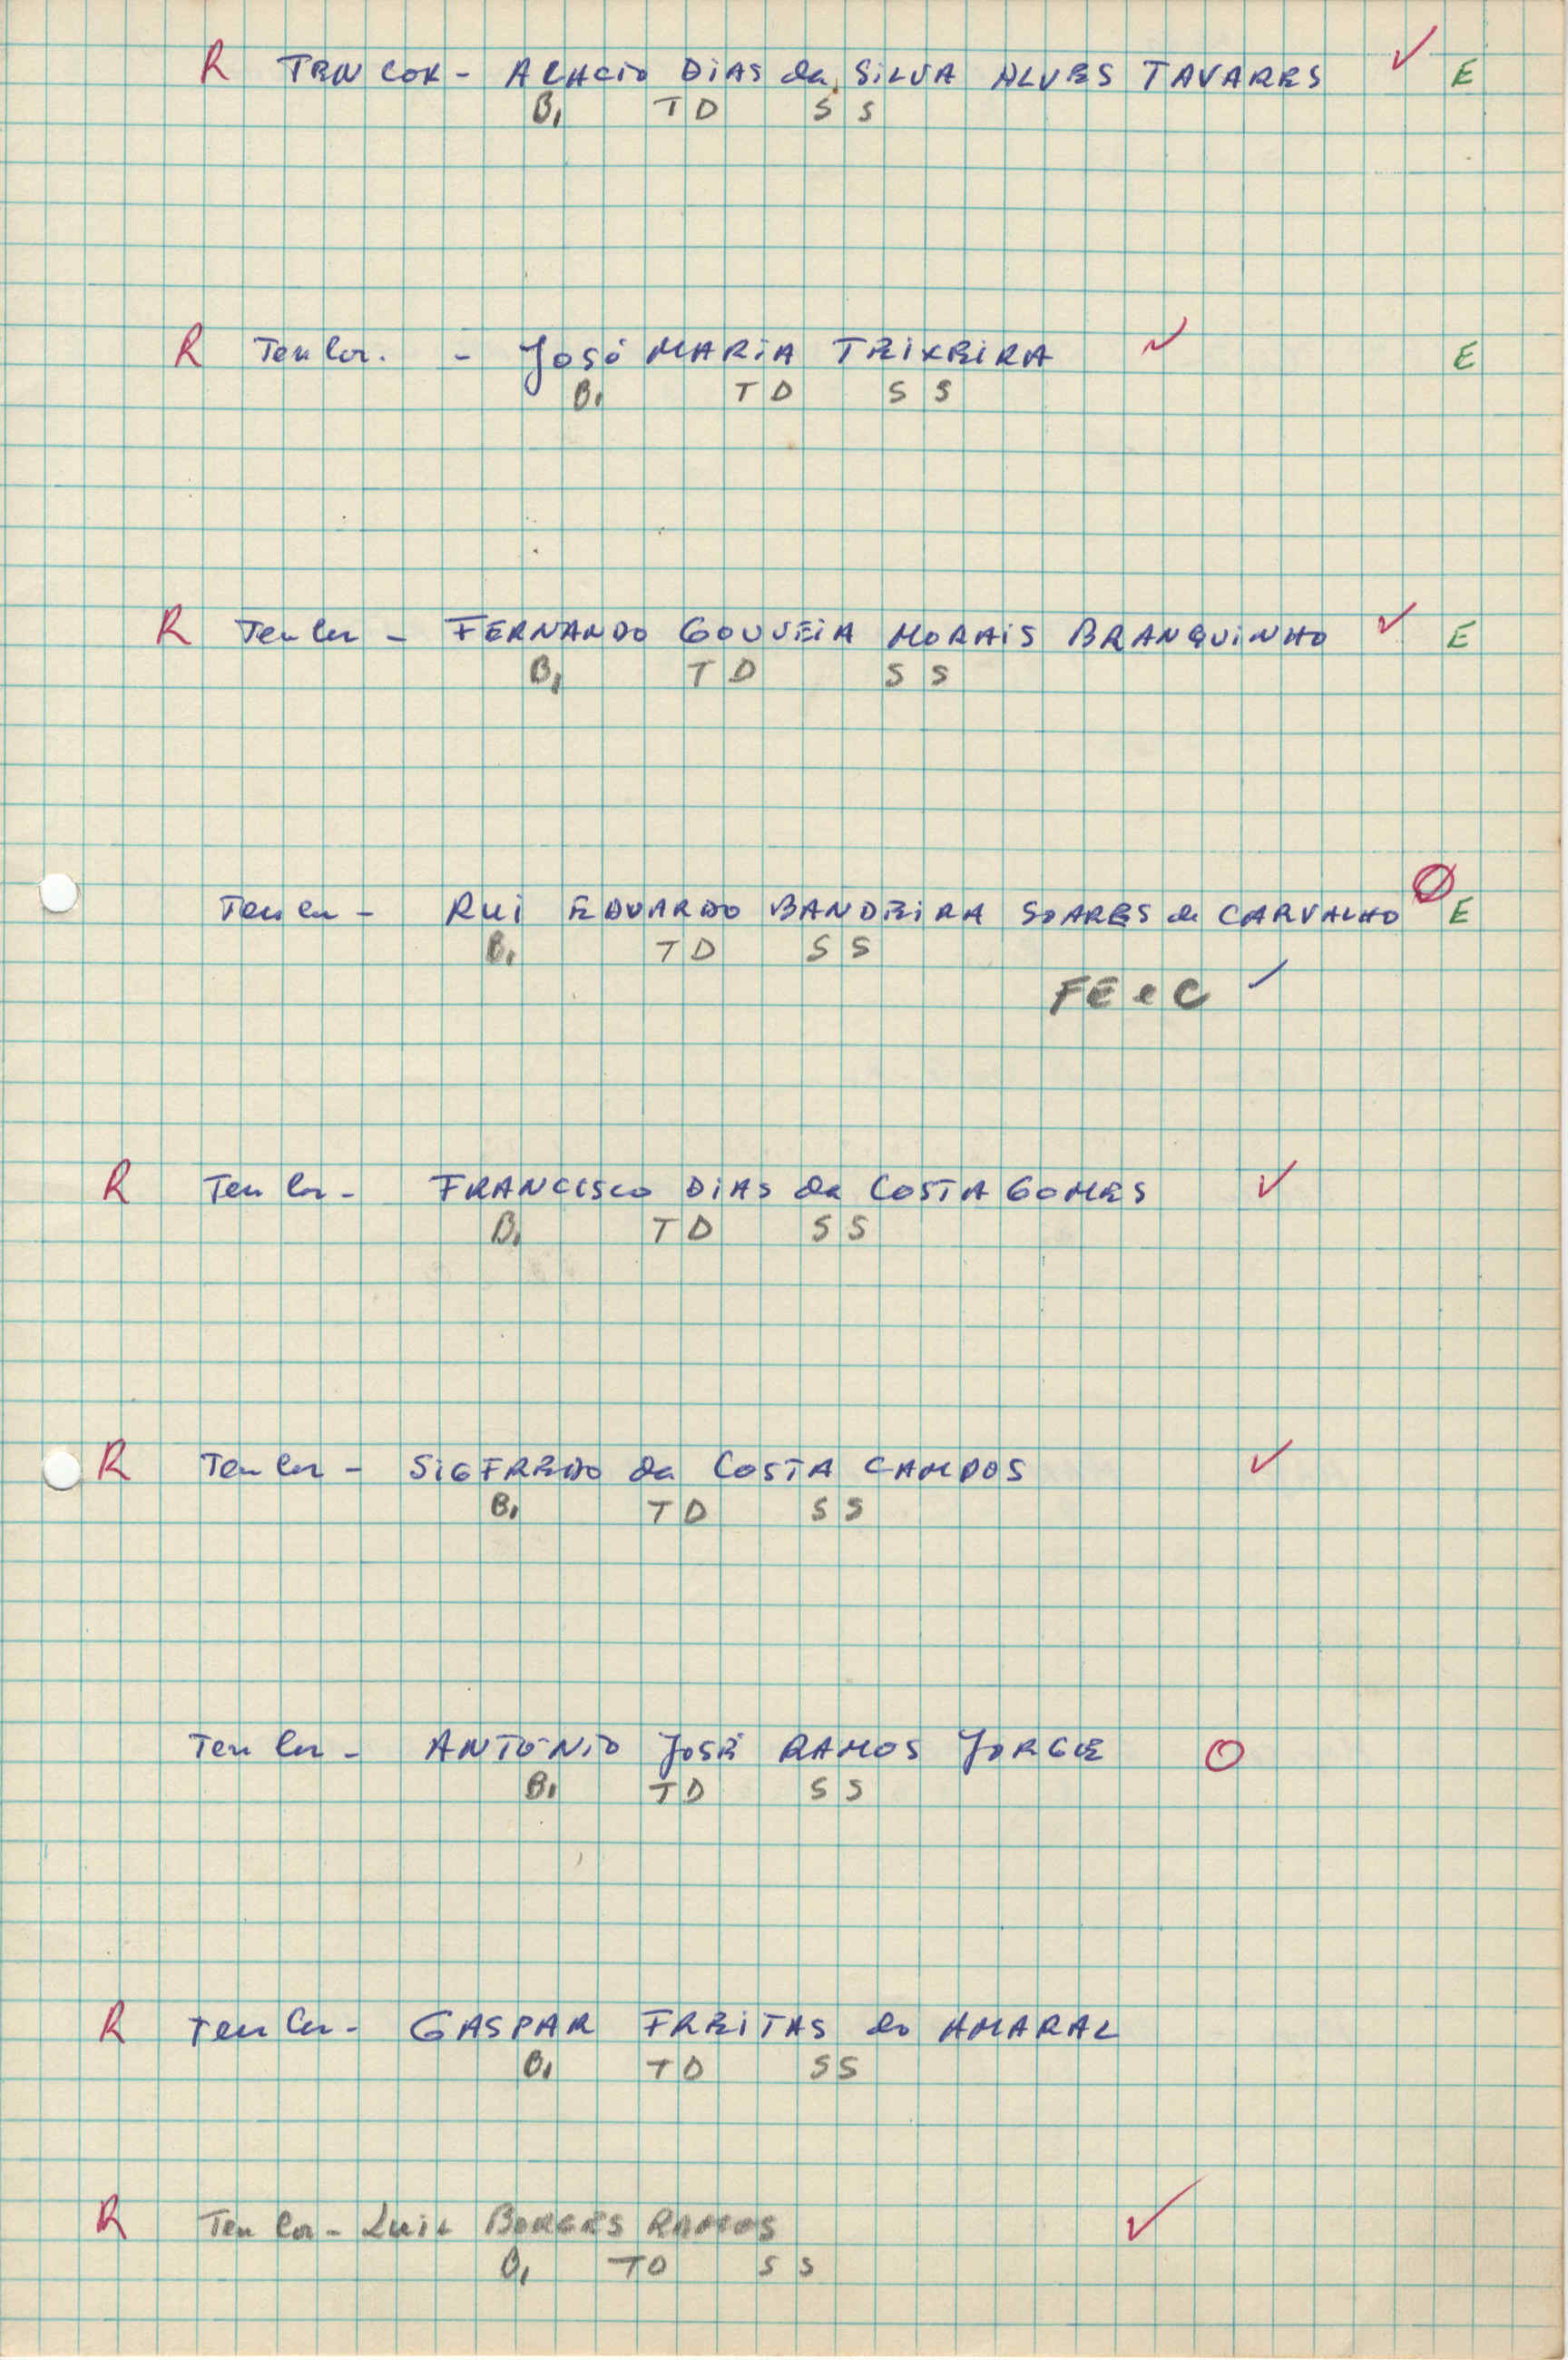 R TEN COR - ACACIO DIAS da SILVA ALVES TAVARES ✓ E
B1 TD SS
R Ten Cor. - José MARIA TEIXEIRA ✓ E
B1 TD SS
R Ten Cor - FERNANDO GOUVEIA MORAIS BRANQUINHO ✓ E
B1 TD SS
Ten Cor - RUI EDUARDO BANDEIRA SOARES de CARVALHO E
B1 TD SS
FE e C ✓
R Ten Cor - FRANCISCO DIAS da COSTA GOMES ✓
B1 TD SS
R Ten Cor - SIGFREDO da COSTA CAMPOS ✓
B1 TD SS
Ten Cor - ANTÓNIO JOSÉ RAMOS JORGE O
B1 TD SS
R Ten Cor - GASPAR FREITAS do AMARAL
B1 TD SS
R Ten Cor - Luis BORGES RAMOS ✓
B1 TD SS